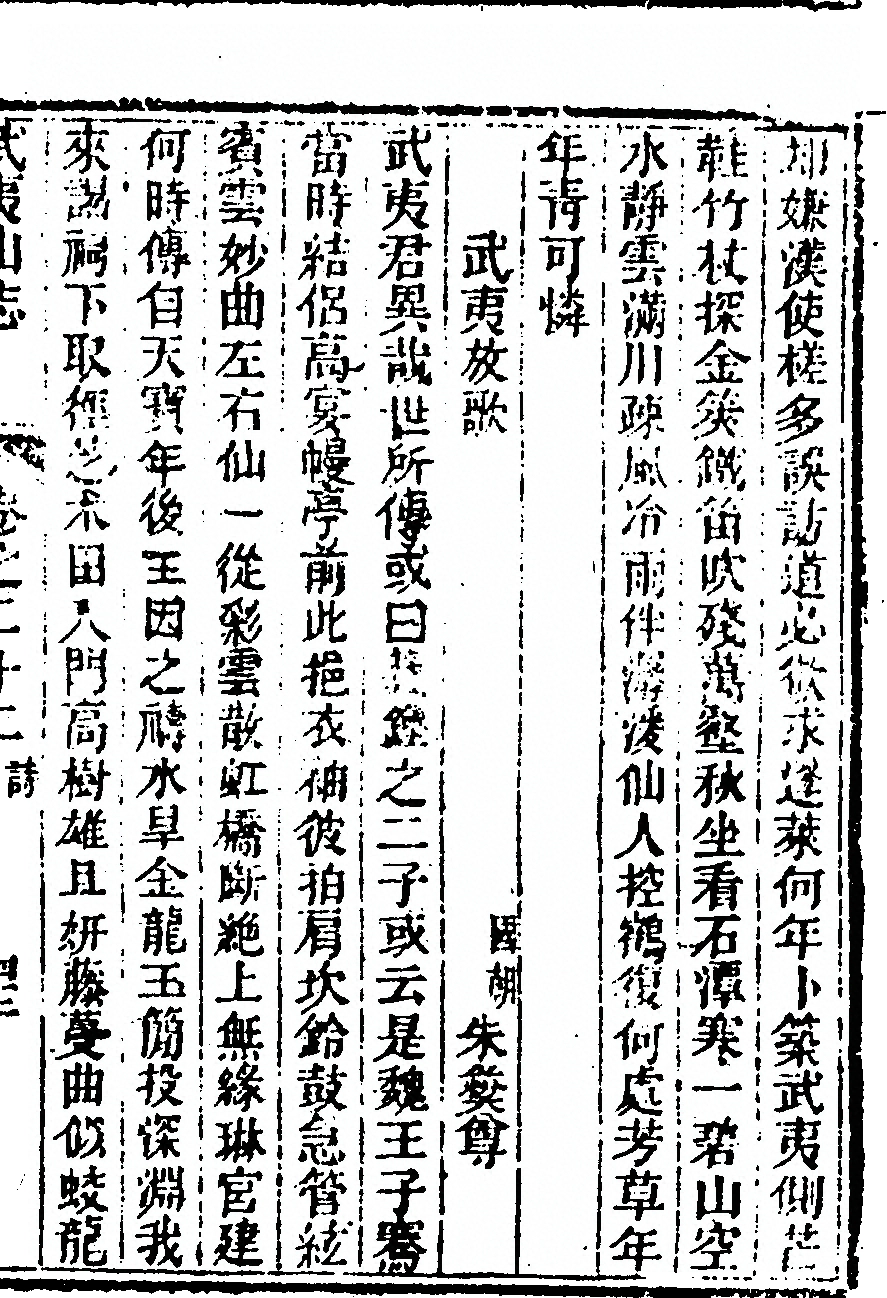 却嫌漢使槎多誤訪道必欲求蓬萊何年卜築武夷側芒
鞋竹杖探金筴鐵笛吹殘萬壑秋坐看石潭寒一碧山空
水靜雲滿川疎風冷雨伴潺湲仙人控鶴復何處芳草年
年靑可憐
武夷放歌
國朝 朱彝尊
武夷君異哉世所傳或曰籛鏗之二子或云是魏王子騫
當時結侶高宴幔亭前此挹衣袖彼拍肩坎鈴鼓急管絃
賓雲妙曲左右仙一從彩雲散虹橋斷絶上無緣琳宮建
何時傳自天寶年後王因之禱水旱金龍玉簡投深淵我
來謁祠下取徑芝禾田入門高樹雄且妍藤蔓曲似蛟龍
武夷山志 卷之二十二 詩